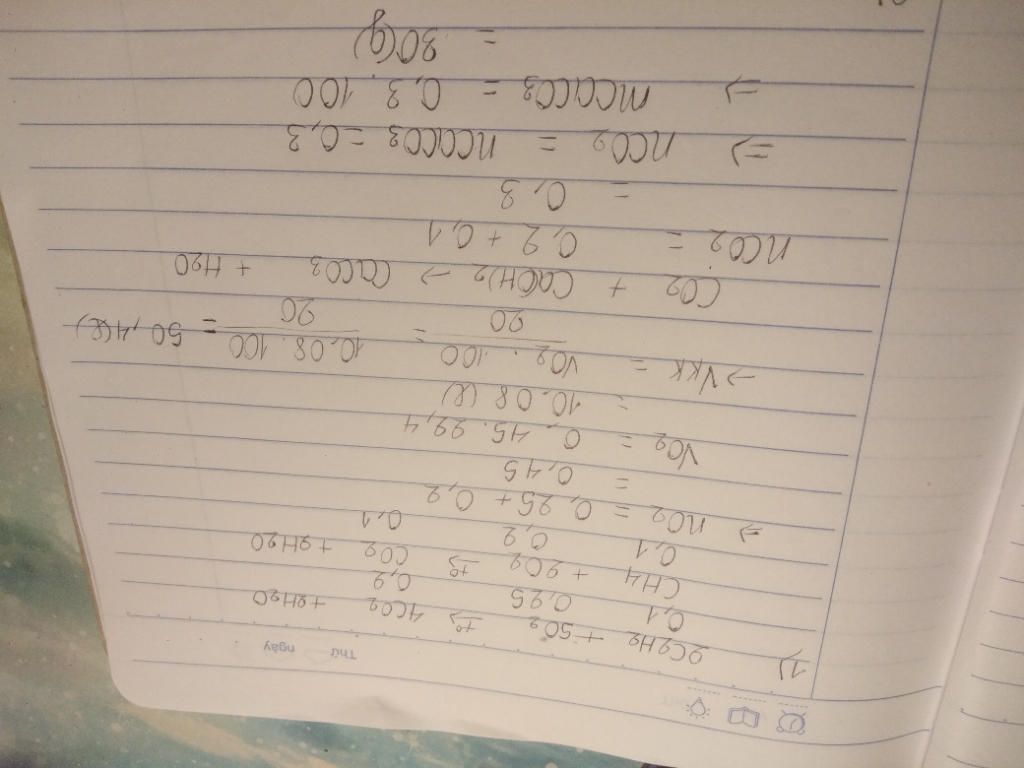 Thứ ngày
1) 2C2H2 + 5O2 t°→ 4CO2 + 2H2O
0,1 0,25 0,2
CH4 + 2O2 t°→ CO2 + 2H2O
0,1 0,2 0,1
=> nO2 = 0,25 + 0,2
= 0,45
VO2 = 0,45.22,4
= 10,08 (l)
→ VKK = VO2 . 100 / 20 = 10,08 . 100 / 20 = 50,4 (l)
CO2 + Ca(OH)2 → CaCO3 + H2O
nCO2 = 0,2 + 0,1
= 0,3
=> nCO2 = nCaCO3 = 0,3
=> mCaCO3 = 0,3.100
= 30(g)